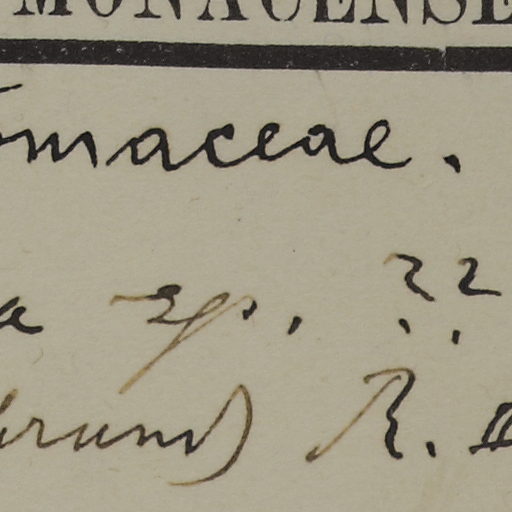 MONACENSE
omaceae.
a sp. ??
brund) R.